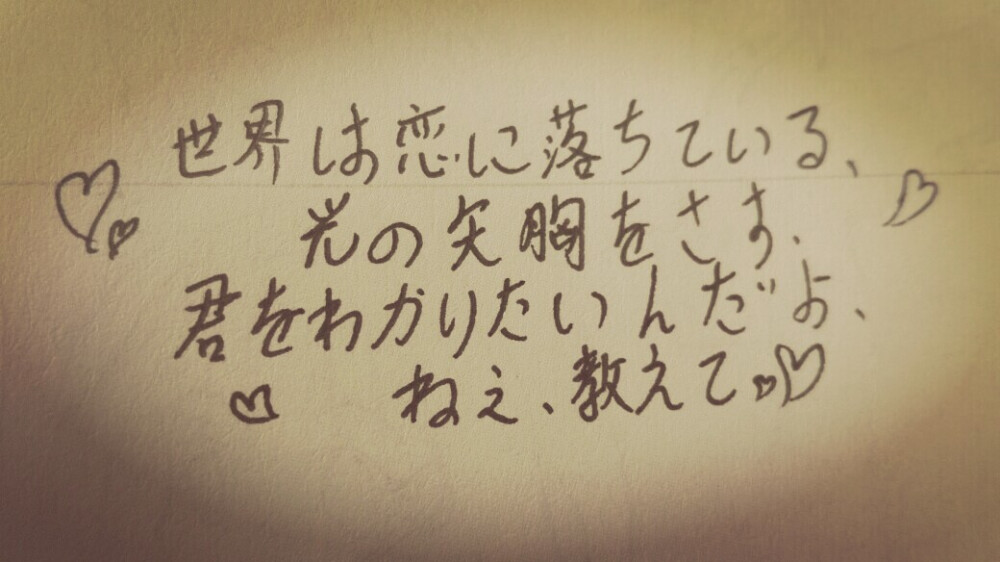 世界は恋に落ちている、
光の矢胸をさす、
君をわかりたいんだよ、
ねぇ、教えて